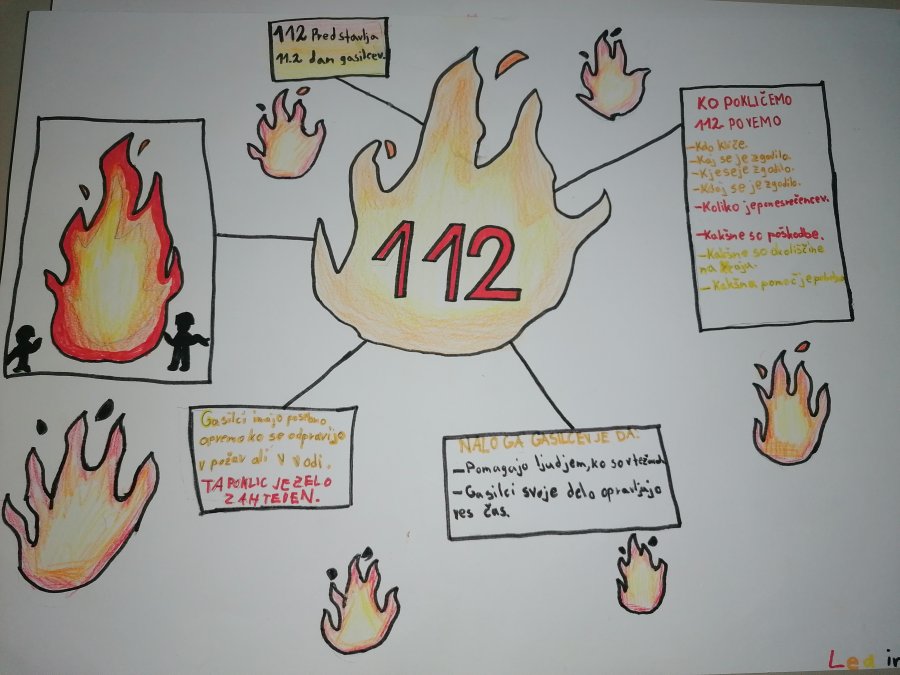 112 Predstavlja
11.2 dan gasilcev.
112
KO POKLIČEMO
112 POVEMO
-Kdo kliče.
-Kaj se je zgodilo.
-Kje se je zgodilo.
-Kdaj se je zgodilo.
-Koliko je ponesrečencev.
-Kakšne so poškodbe.
-Kakšne so okoliščine
na kraju.
-Kakšna pomoč je
Gasilci imajo posebno
opremo ko se odpravijo
v požar ali v vodi.
TA POKLIC JE ZELO
ZAHTEVEN.
NALOGA GASILCEV JE DA:
-Pomagajo ljudjem, ko so v težavah
-Gasilci svoje delo opravljajo
ves čas.
Led in